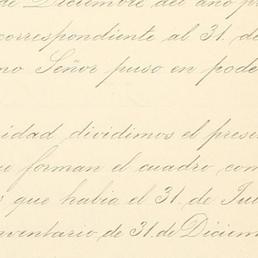 de Diciembre del año pr
correspondiente al 31 de
mo Señor puso en pode
idad dividimos el prese
ue forman el cuadro, com
s que habia el 31 de Ju
nventario de 31 de Diciem